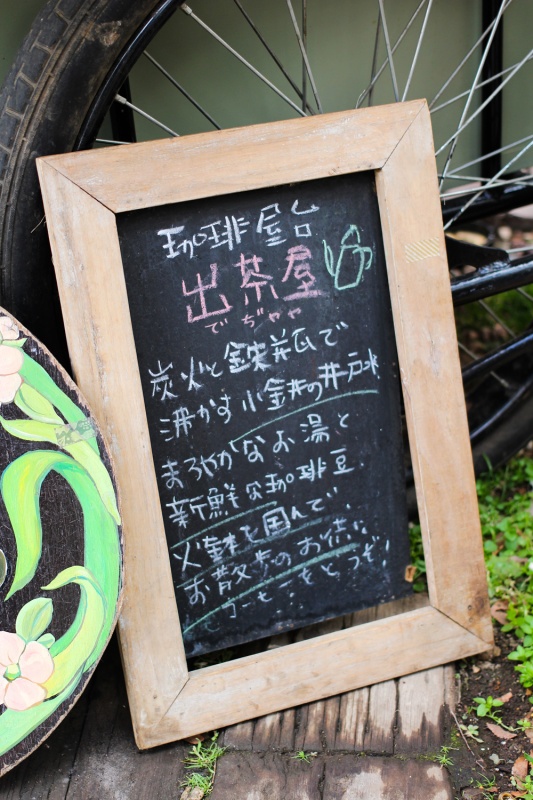 珈琲屋台
出茶屋
でぢゃや
炭火と鉄瓶で
沸かす小金井の井戸水
まろやかなお湯と
新鮮な珈琲豆
火鉢を囲んで、
お散歩のお供に
コーヒーをどうぞ!